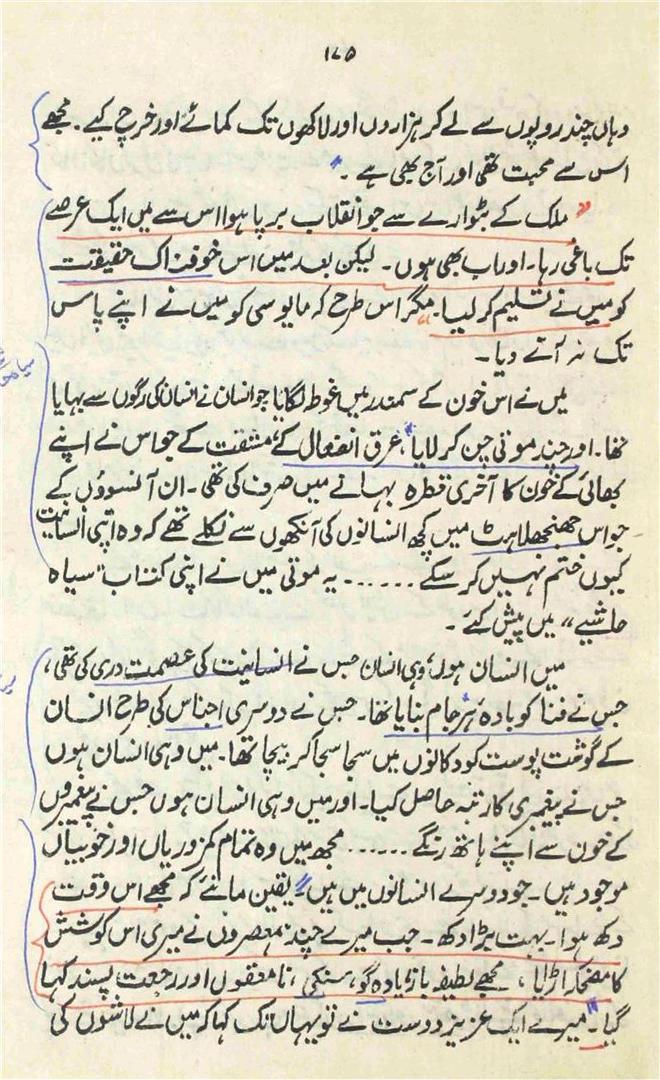 ۱۷۵
وہاں چند روپوں سے لے کر ہزاروں اور لاکھوں تک کمائے اور خرچ کیے۔ مجھے
اس سے محبت تھی اور آج بھی ہے۔"
"ملک کے بٹوارے سے جو انقلاب برپا ہوا اس سے میں ایک عرصے
تک باغی رہا۔ اور اب بھی ہوں۔ لیکن بعد میں اس خوفناک حقیقت
کو میں نے تسلیم کر لیا۔ مگر اس طرح کہ مایوسی کو میں نے اپنے پاس
تک نہ آنے دیا۔
میں نے اس خون کے سمندر میں غوطہ لگایا جو انسان نے انسان کی رگوں سے بہایا
تھا۔ اور چند موتی چن کر لایا، عرق انفعال کے، مشقت کے جو اس نے اپنے
بھائی کے خون کا آخری قطرہ بہانے میں صرف کی تھی۔ ان آنسووُں کے
جو اس جھنجھلاہٹ میں کچھ انسانوں کی آنکھوں سے نکلے تھے کہ وہ اپنی انسانیت
کیوں ختم نہیں کر سکے ...... یہ موتی میں نے اپنی کتاب "سیاہ
حاشیے" میں پیش کیے۔
میں انسان ہوں، وہی انسان جس نے انسانیت کی عصمت دری کی تھی،
جس نے فنا کو بادہ ہر جام بنایا تھا۔ جس نے دوسری اجناس کی طرح انسان
کے گوشت پوست کو دکانوں میں سجا سجا کر بیچا تھا۔ میں وہی انسان ہوں
جس نے پیغمبری کا رتبہ حاصل کیا۔ اور میں وہی انسان ہوں جس نے پیغمبروں
کے خون سے اپنے ہاتھ رنگے ...... مجھ میں وہ تمام کمزوریاں اور خوبیاں
موجود ہیں۔ جو دوسرے انسانوں میں ہیں۔ یقین مانئے کہ مجھے اس وقت
دکھ ہوا۔ بہت بڑا دکھ۔ جب میرے چند ہمعصروں نے میری اس کوشش
کا مضحکہ اڑایا، مجھے لطیفہ باز، یادہ گو، سنکی، نامعقول اور رجعت پسند کہا
گیا۔" میرے ایک عزیز دوست نے تو یہاں تک کہا کہ میں نے لاشوں کی